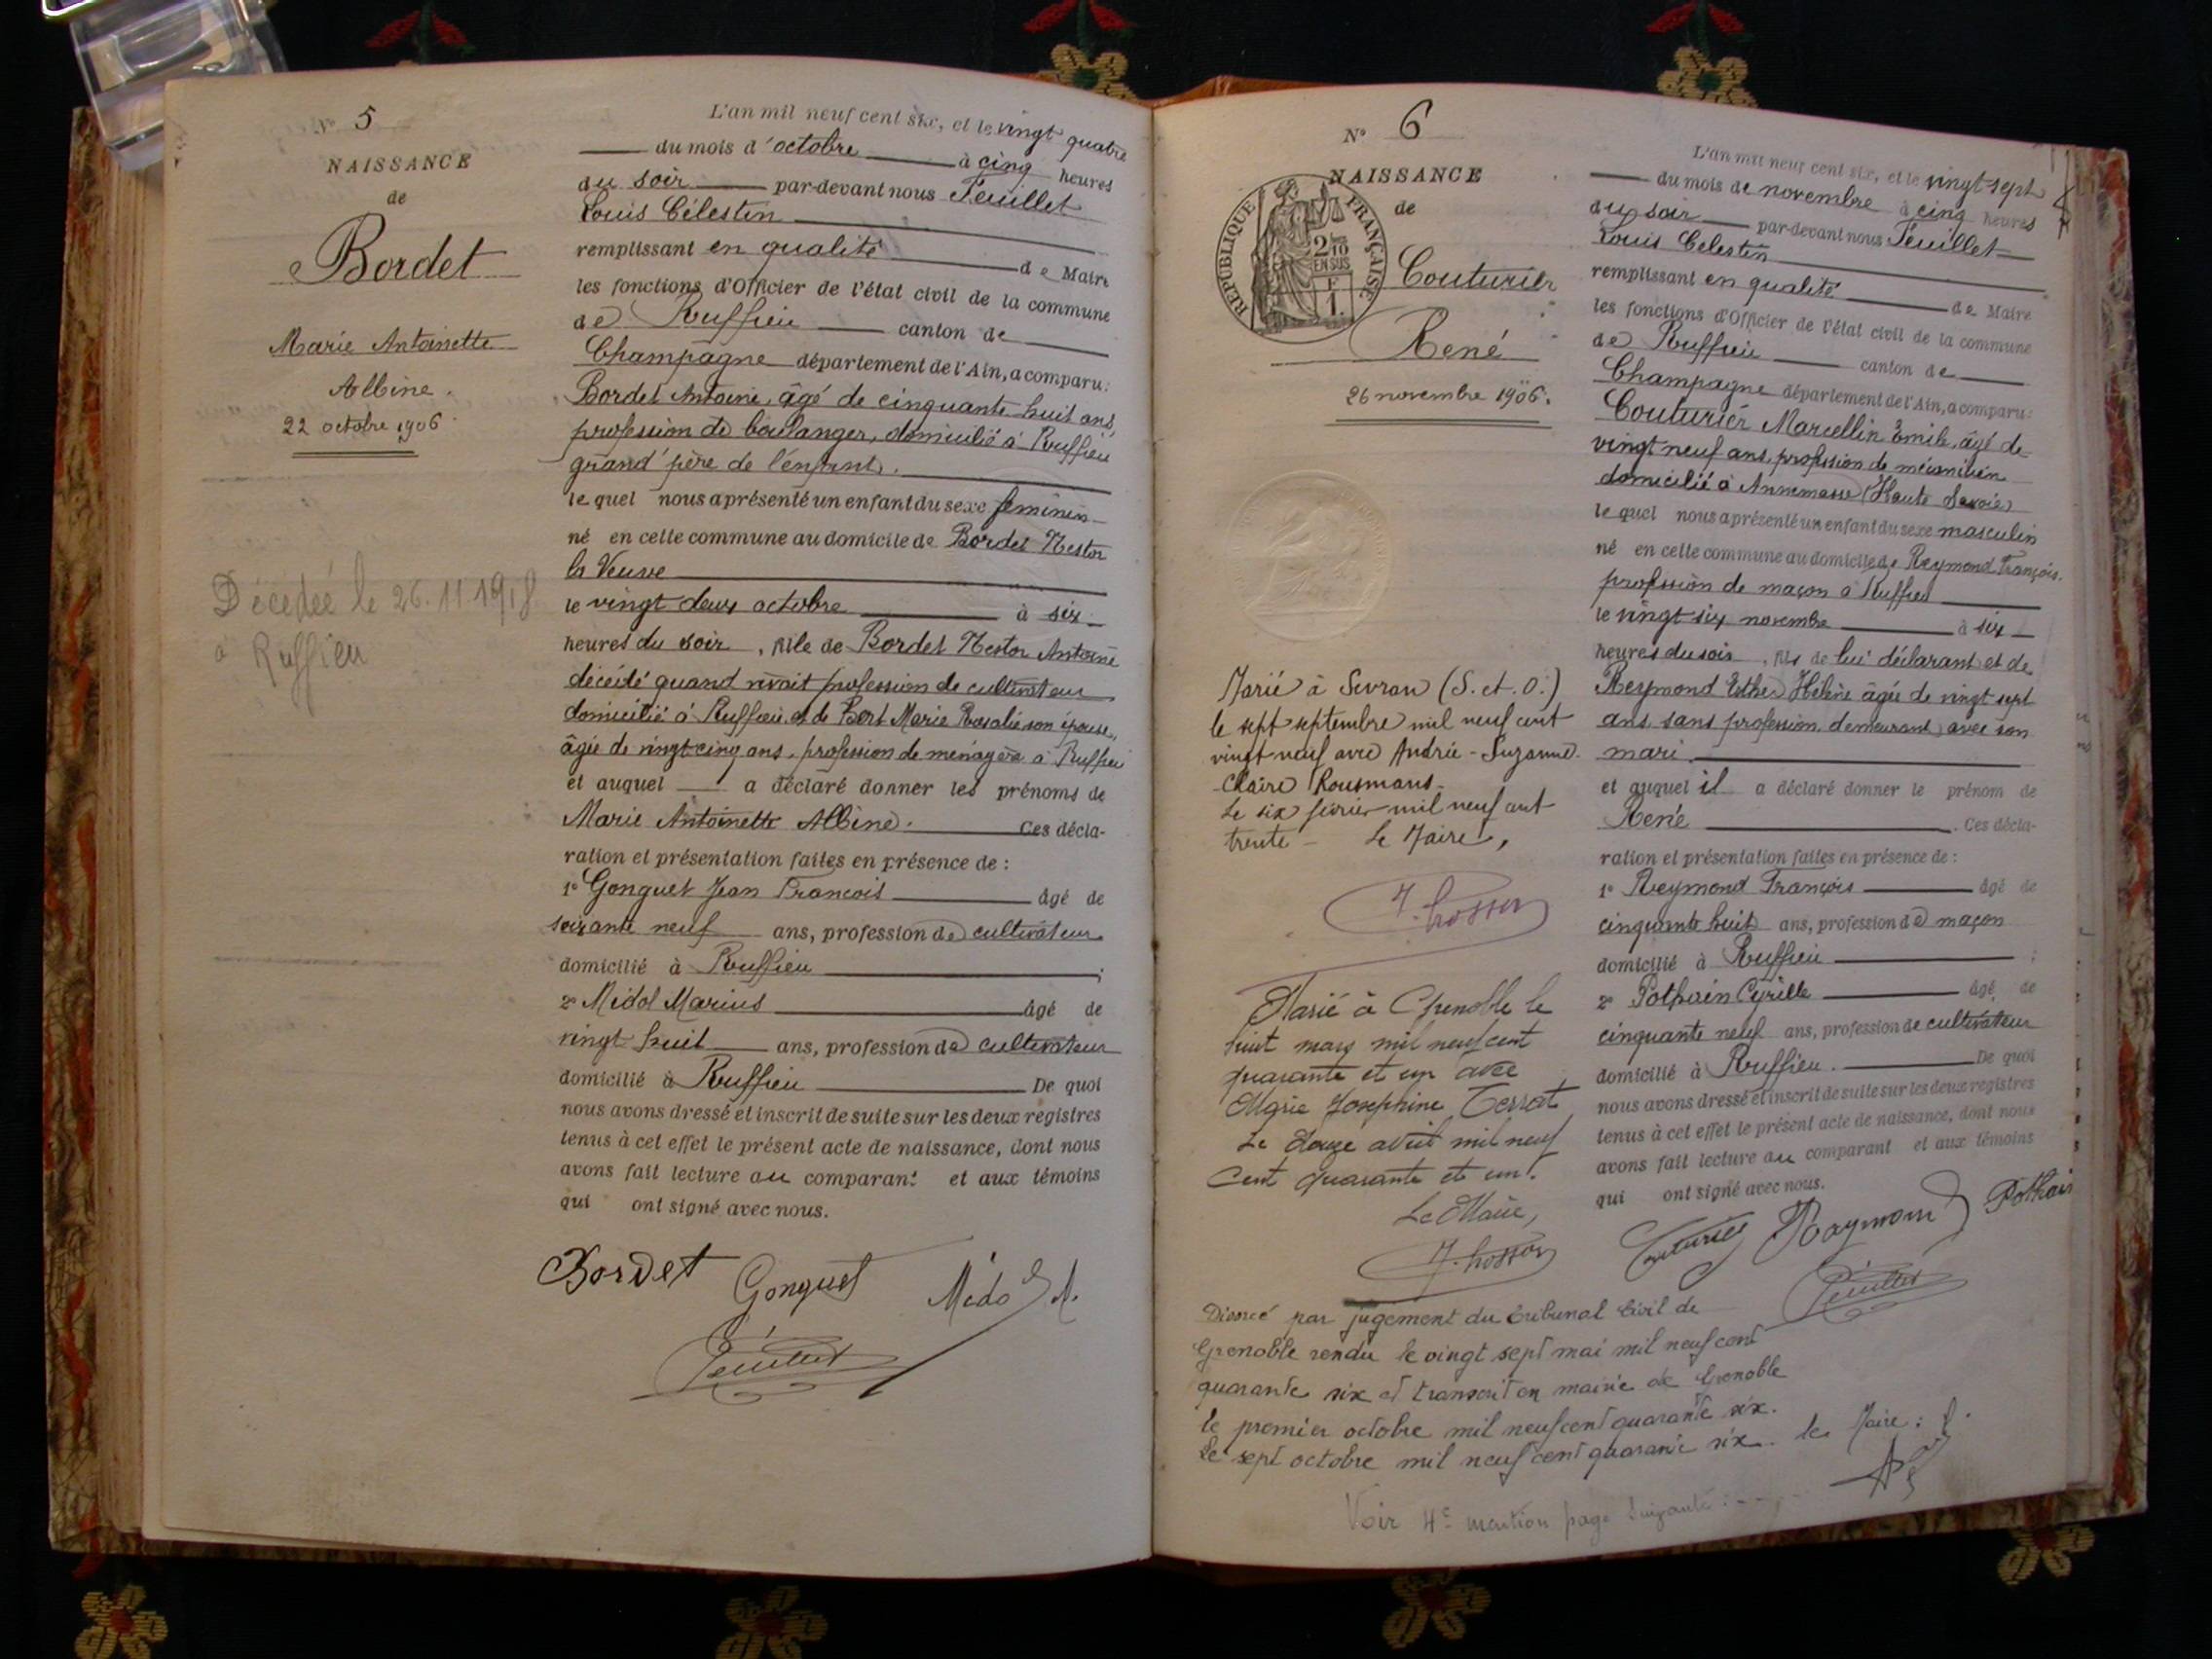 N° 5
NAISSANCE
de
Bordet
Marie Antoinette
Albine.
22 octobre 1906
Décédée le 26.11.1918
à Ruffieu
L'an mil neuf cent six, et le vingt quatre
du mois d'octobre à cinq heures
du soir par-devant nous Feuillet
Louis Célestin
remplissant en qualité de Maire
les fonctions d'Officier de l'état civil de la commune
de Ruffieu canton de
Champagne département de l'Ain, a comparu:
Bordet Antoine, âgé de cinquante huit ans,
profession de boulanger, domicilié à Ruffieu
grand'père de l'enfant.
lequel nous a présenté un enfant du sexe féminin
né en cette commune au domicile de Bordet Nestor
la Veuve
le vingt deux octobre à six
heures du soir, fille de Bordet Nestor Antoine
décédé quand vivait profession de cultivateur
domicilié à Ruffieu et de Bert Marie Rosalie son épouse,
âgée de vingt cinq ans, profession de ménagère à Ruffieu
et auquel a déclaré donner les prénoms de
Marie Antoinette Albine. Ces décla-
ration et présentation faites en présence de :
1° Gonguet Jean François âgé de
soixante neuf ans, profession de cultivateur
domicilié à Ruffieu ;
2° Midol Marius âgé de
vingt huit ans, profession de cultivateur
domicilié à Ruffieu De quoi
nous avons dressé et inscrit de suite sur les deux registres
tenus à cet effet le présent acte de naissance, dont nous
avons fait lecture au comparant et aux témoins
qui ont signé avec nous.
Bordet Gonguet Midol M.
Feuillet
N° 6
NAISSANCE
de
RÉPUBLIQUE FRANÇAISE
2/10
EN SUS
F
1.
Couturier
René
26 novembre 1906.
Marié à Sevran (S. et. O.)
le sept septembre mil neuf cent
vingt neuf avec Andrée-Suzanne
-Claire Rousmans.
Le six février mil neuf cent
trente - Le Maire,
Marié à Grenoble le
huit mars mil neuf cent
quarante et un avec
Marie Josephine Terrat
Le douze avril mil neuf
Cent quarante et un.
Le Maire,
Divorcé par jugement du tribunal Civil de
Grenoble rendu le vingt sept mai mil neuf cent
quarante six et transcrit en mairie de Grenoble
le premier octobre mil neuf cent quarante six.
Le sept octobre mil neuf cent quarante six. le Maire :
Voir 4e mention page suivante :
L'an mil neuf cent six, et le vingt sept
du mois de novembre à cinq heures
du soir par-devant nous Feuillet
Louis Célestin
remplissant en qualité de Maire
les fonctions d'Officier de l'état civil de la commune
de Ruffieu canton de
Champagne département de l'Ain, a comparu:
Couturier Marcellin Emile, âgé de
vingt neuf ans, profession de mécanicien
domicilié à Annemasse (Haute Savoie)
lequel nous a présenté un enfant du sexe masculin
né en cette commune au domicile de Reymond François,
profession de maçon à Ruffieu
le vingt six novembre à six
heures du soir, fils de lui déclarant et de
Reymond Esther Hélène âgée de vingt sept
ans sans profession demeurant avec son
mari.
et auquel il a déclaré donner le prénom de
René. Ces décla-
ration et présentation faites en présence de :
1° Reymond François âgé de
cinquante huit ans, profession de maçon
domicilié à Ruffieu ;
2° Pothain Cyrille âgé de
cinquante neuf ans, profession de cultivateur
domicilié à Ruffieu. De quoi
nous avons dressé et inscrit de suite sur les deux registres
tenus à cet effet le présent acte de naissance, dont nous
avons fait lecture au comparant et aux témoins
qui ont signé avec nous.
Couturier Raymond Pothain
Feuillet